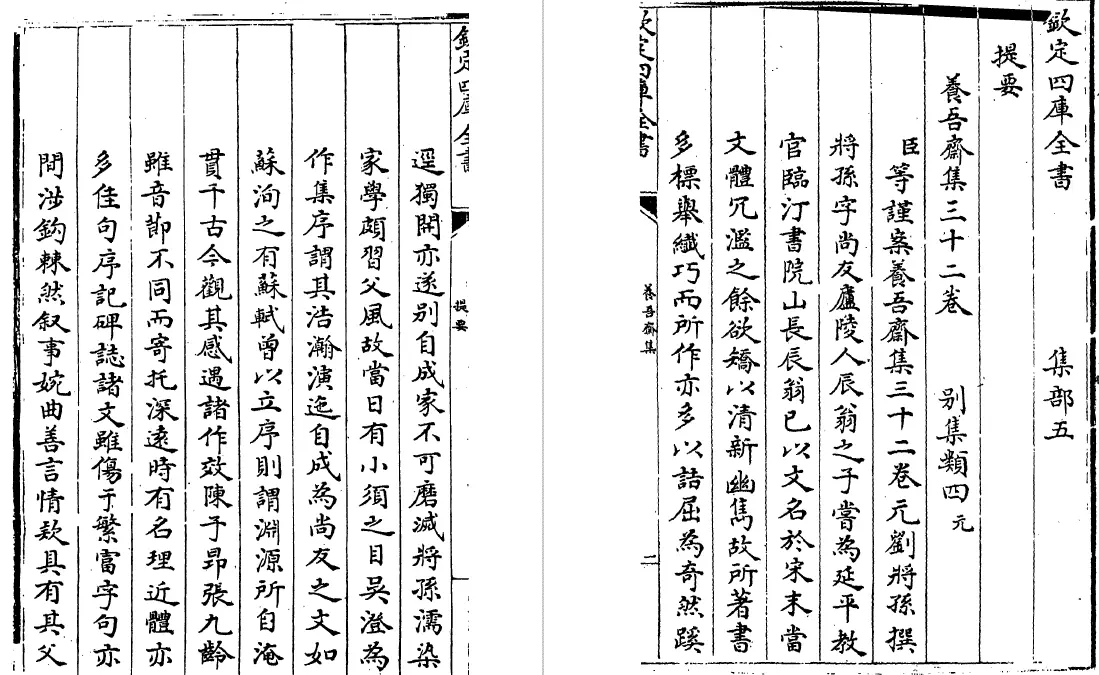 欽定四庫全書　集部五
提要
養吾齋集三十二卷　别集類四　元
臣等謹案養吾齋集三十二卷元劉將孫撰
將孫字尚友廬陵人辰翁之子嘗為延平教
官臨汀書院山長辰翁已以文名於宋末當
文體冗濫之餘欲矯以清新幽雋故所著書
多標舉纎巧而所作亦多以詰屈為奇然蹊
欽定四庫全書　養吾齋集　二
欽定四庫全書　提要
逕獨開亦遂别自成家不可磨滅將孫濡染
家學頗習父風故當日有小須之目吳澄為
作集序謂其浩瀚演迤自成為尚友之文如
蘇洵之有蘇軾曾以立序則謂淵源所自淹
貫千古今觀其感遇諸作效陳子昂張九齡
雖音節不同而寄托深遠時有名理近體亦
多佳句序記碑誌諸文雖傷于繁富字句亦
間涉鈎棘然叙事婉曲善言情欵具有其父